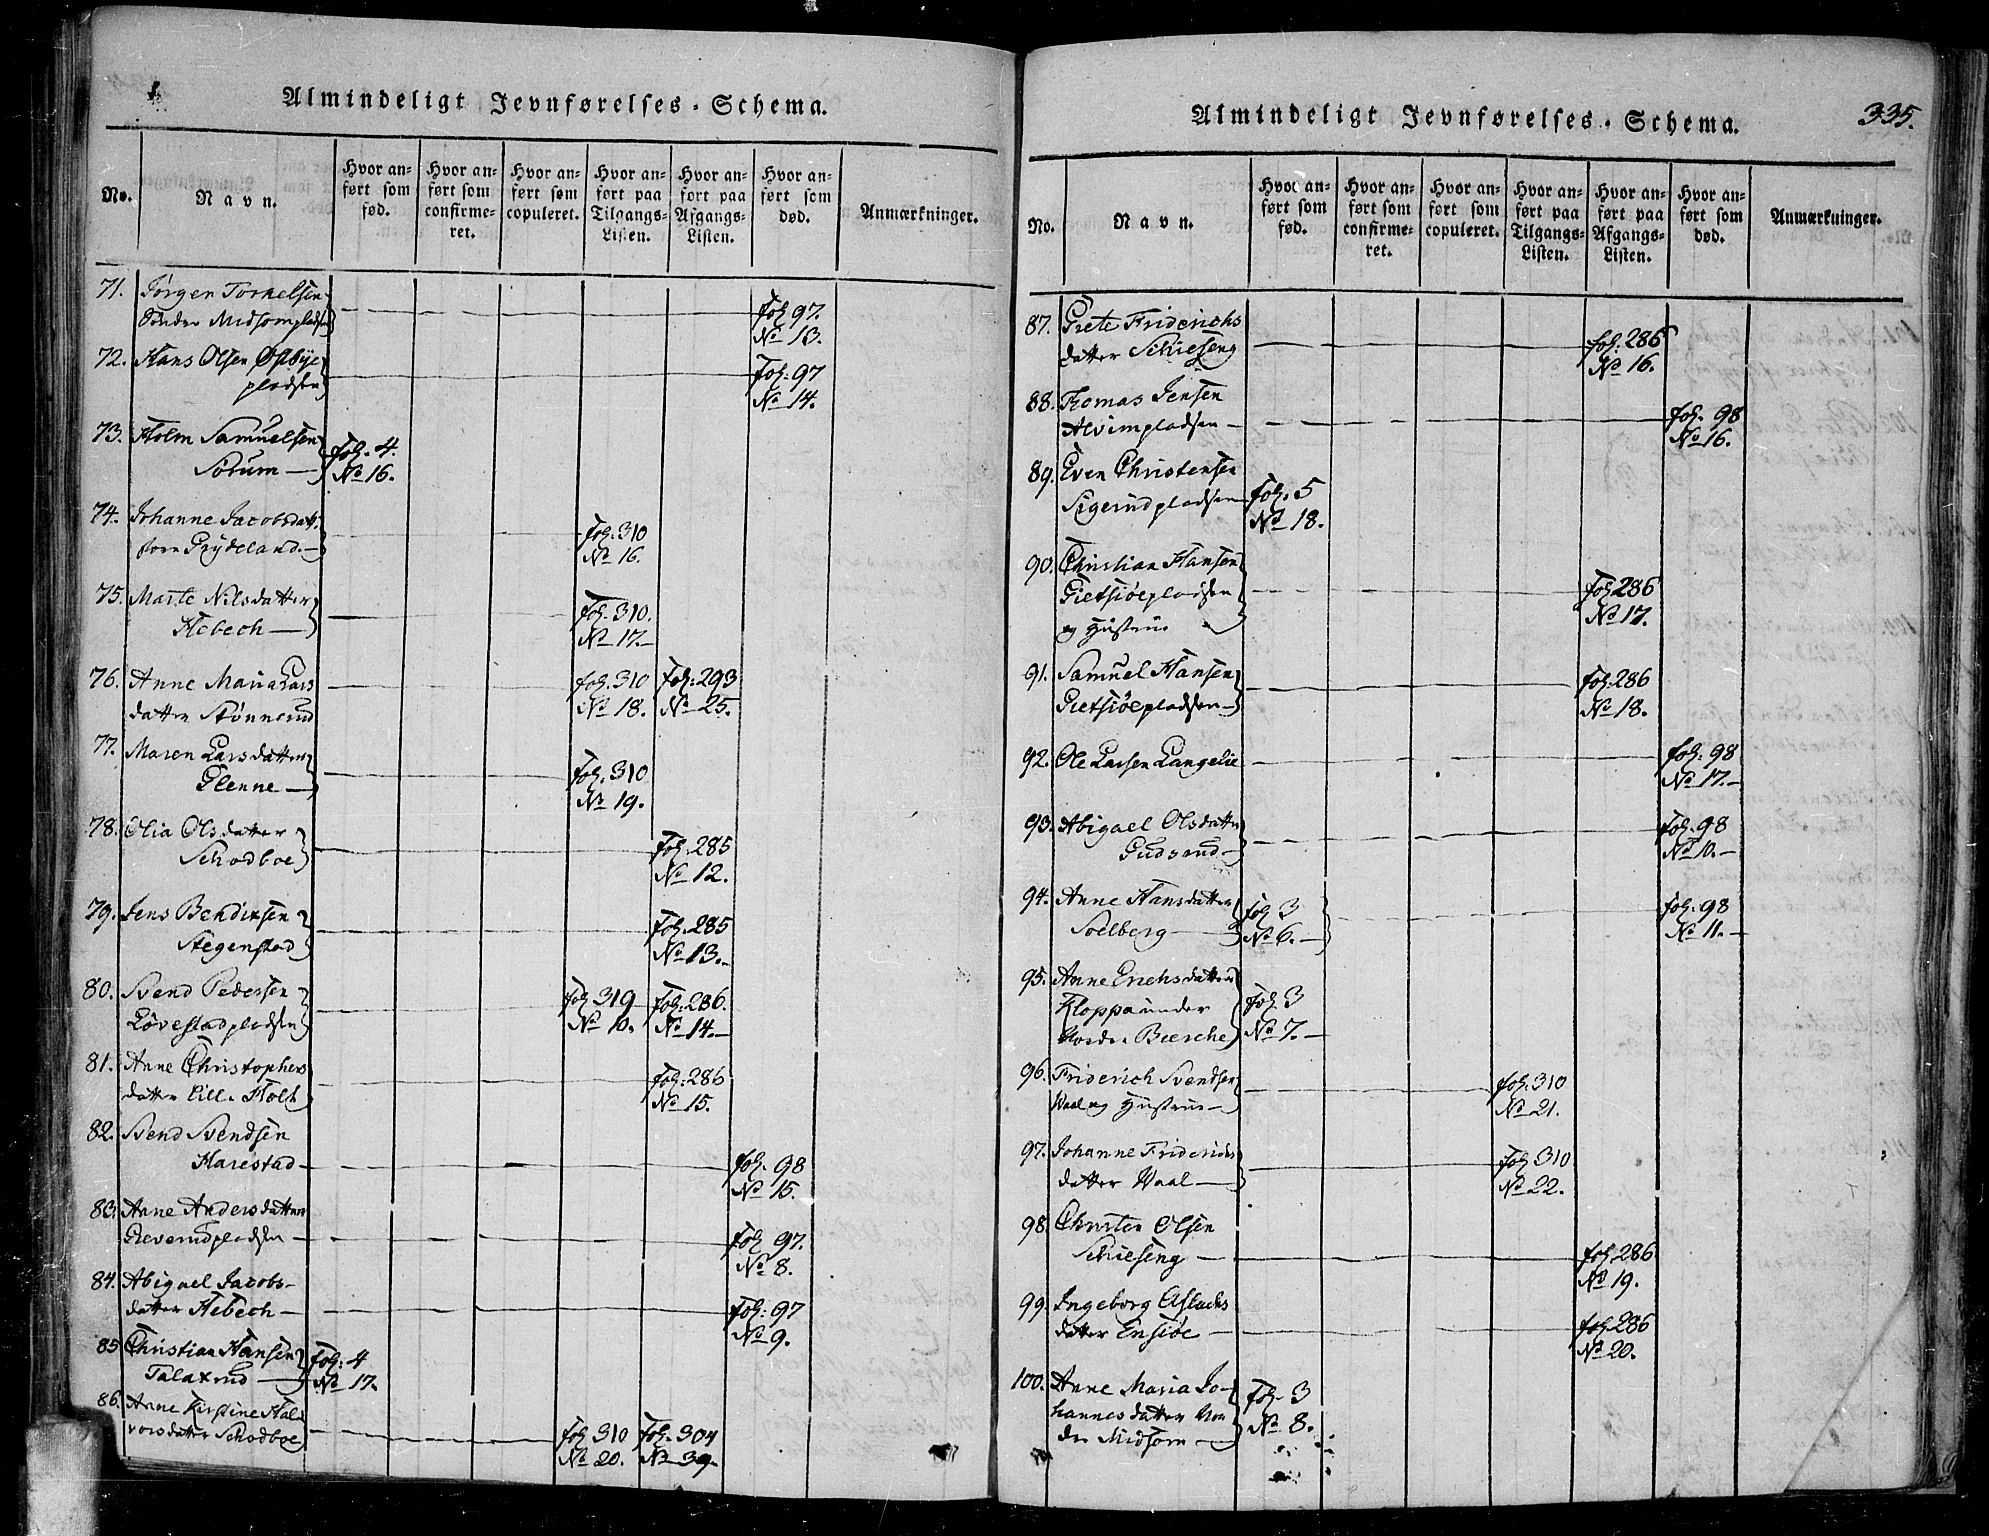 Almindeligt Jevnførelses-Schema.
No.
Navn.
Hvor anført som fød.
Hvor anført som confirmeret.
Hvor anført som copuleret.
Hvor anført paa Tilgangs-Listen.
Hvor anført paa Afgangs-Listen.
Hvor anført som død.
Anmærkninger.
71. Jörgen Torkelsen
Söndre Midsompladsen
fol. 97.
No 13.
72. Hans Olsen Østbye
pladsen
fol: 97
No 14.
73. Holm Samuelsen
Sörum
fol. 4.
No 16.
74. Johanne Jacobsdatt.
Grydeland
fol. 310
No 16.
75. Marte Nilsdatter
Hebech
fol. 310.
No 17.
76. Anne Maria Lars
datter Stønnerud
fol. 310 fol: 293
No 18. No 25.
77. Maren Larsdatter
Glenne
fol. 310
No 19.
78. Olia Olsdatter
Schodboe
fol: 285
No 12.
79. Jens Bendixsen
Stegenstad
fol. 285
No 13.
80. Svend Pedersen
Lövestadpladsen
fol. 319 fol: 286.
No 10. No 14.
81. Anne Christophers
datter Lille Holt
fol: 286
No 15.
82. Svend Svendsen
Harestad
fol. 98
No 15.
83. Anne Andersdatter
Greverudpladsen
fol. 97.
No 8.
84. Abigael Jacobs-
datter Hebech
fol: 97
No 9.
85 Christian Hansen
Talaxrud
fol: 4
No 17.
86. Anne Kirstine Hal
vorsdatter Schodboe
fol. 310 fol. 304
No 20. No 39.
Almindeligt Jevnførelses-Schema.
335.
No.
Navn.
Hvor anført som fød.
Hvor anført som confirmeret.
Hvor anført som copuleret.
Hvor anført paa Tilgangs-Listen.
Hvor anført paa Afgangs-Listen.
Hvor anført som død.
Anmærkninger.
87. Grete Friderichs
datter Schieseng
fol: 286
No 16.
88. Thomas Jensen
Alvimpladsen
fol. 98
No 16.
89. Even Christensen
Sigerudpladsen
fol. 5
No 18.
90. Christian Hansen
Gietsiöepladsen
og Hustrue
fol. 286
No 17.
91. Samuel Hansen
Gietsiöepladsen
fol. 286
No 18.
92. Ole Larsen Langelie
fol: 98
No 17.
93. Abigael Olsdatter
Gudsrud
fol. 98
No 10.
94. Anne Hansdatter
Soelberg
fol. 3
No 6.
fol. 98
No 11.
95. Anne Erichsdatter
Kloppa under
Nordre Beersche
fol. 3
No 7.
96. Friderich Svendsen
Waal og Hustrue
fol. 310
No 21.
97. Johanne Friderichs
datter Vaal
fol. 310
No 22.
98. Christen Olsen
Schieseng
fol. 286
No 19.
99. Ingeborg Aslachs
datter Ensiöe
fol. 286
No 20.
100. Anne Maria Jo-
hannesdatter Nor
dre Midsom
fol. 3
No 8.